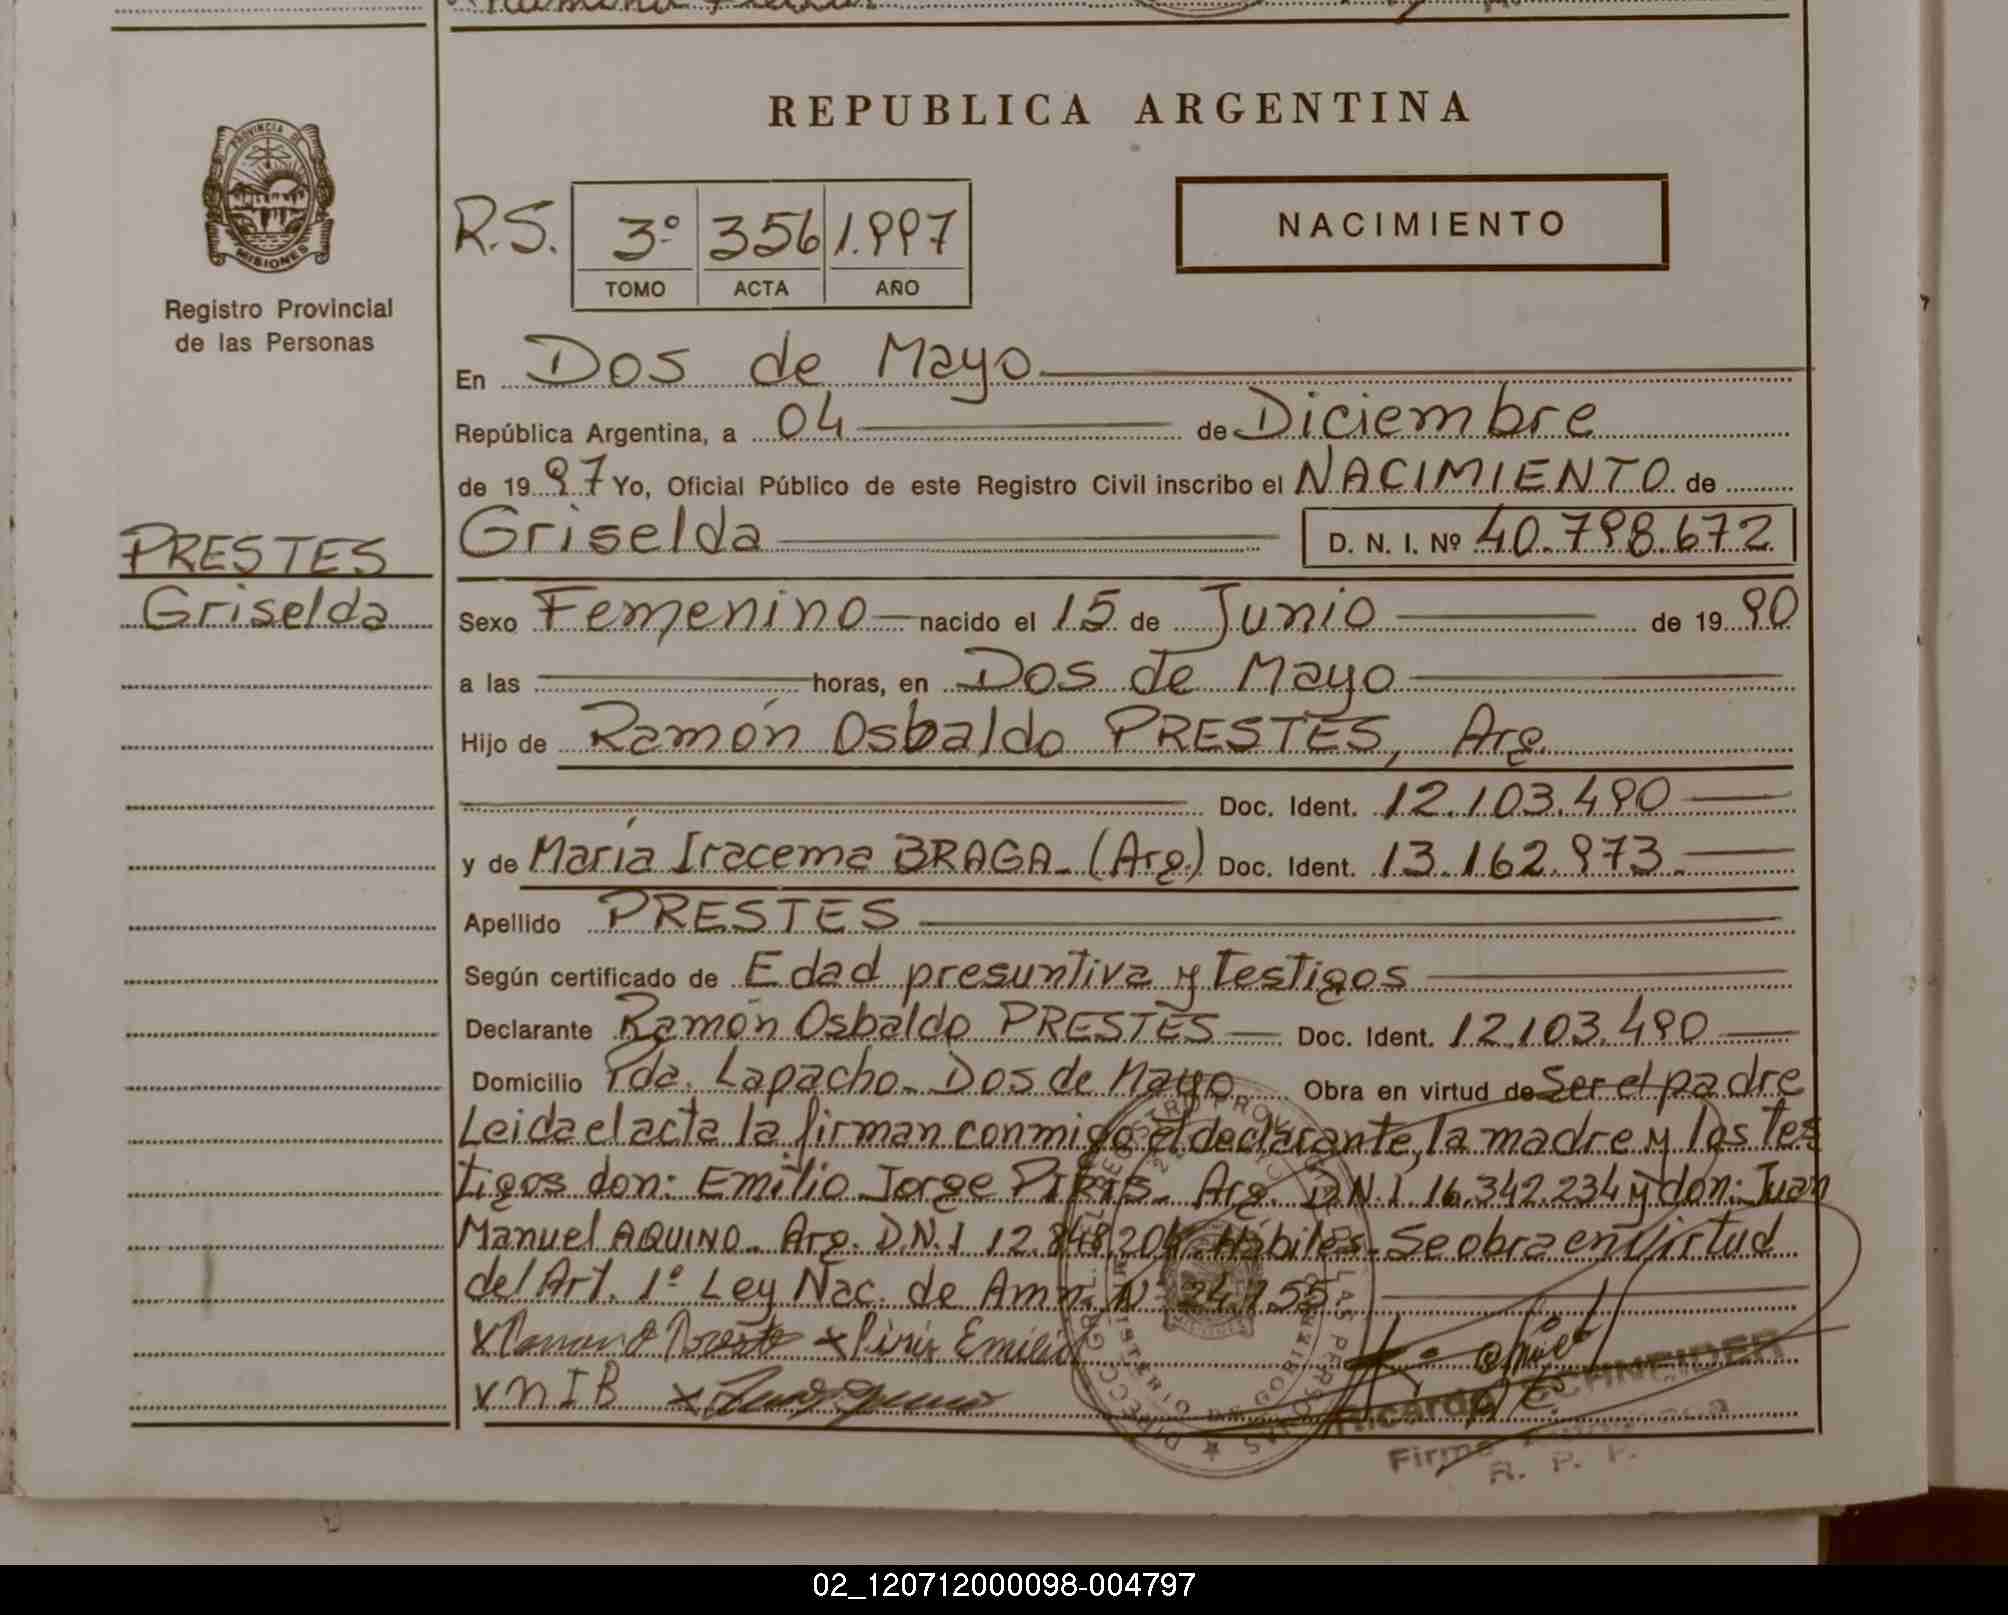 REPUBLICA ARGENTINA
PROVINCIA DE
MISIONES
Registro Provincial
de las Personas
R.S. 3º 356 1.997
TOMO ACTA AÑO
NACIMIENTO
En Dos de Mayo
República Argentina, a 04 de Diciembre
de 1997 Yo, Oficial Público de este Registro Civil inscribo el NACIMIENTO de
PRESTES
Griselda
Griselda D. N. I. Nº 40.798.672
Sexo Femenino nacido el 15 de Junio de 1990
a las horas, en Dos de Mayo
Hijo de Ramón Osbaldo PRESTES, Arg.
Doc. Ident. 12.103.490
y de María Iracema BRAGA-(Arg.) Doc. Ident. 13.162.973.
Apellido PRESTES
Según certificado de Edad presuntiva y testigos
Declarante Ramón Osbaldo PRESTES Doc. Ident. 12.103.490
Domicilio Pda. Lapacho- Dos de Mayo Obra en virtud de Ser el padre
Leida el acta la firman conmigo el declarante, la madre y los tes
tigos don: Emilio Jorge Arg. D.N.I. 16.342.234 y don: Juan
Manuel AQUINO- Arg. D.N.I 12.848.204 Hábiles- Se obra en virtud
del Art. 1º Ley Nac. de Amn. Nº 24.755.
x Piris Emilio
x M I B
Ricardo SCHNEIDER
Firma
R. P. P.
02_120712000098-004797